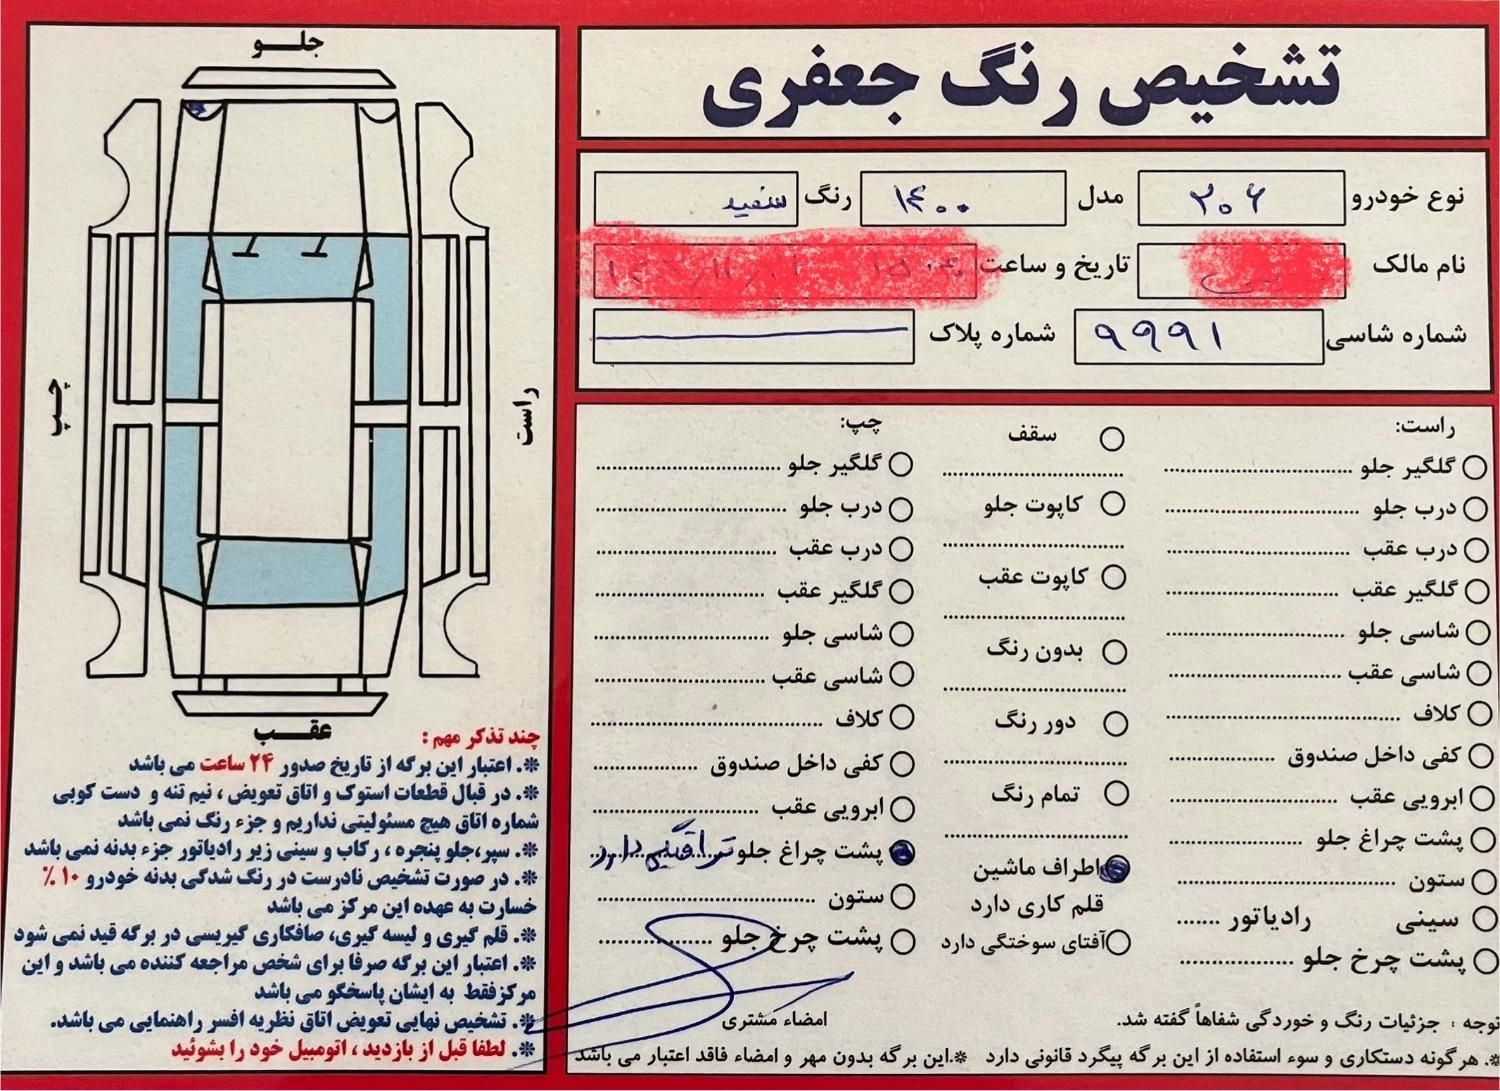 تشخیص رنگ جعفری
نوع خودرو ۲۰۶ مدل ۱۴۰۰ رنگ سفید
نام مالک تاریخ و ساعت
شماره شاسی ۹۹۹۱ شماره پلاک
راست:
گلگیر جلو
درب جلو
درب عقب
گلگیر عقب
شاسی جلو
شاسی عقب
کلاف
کفی داخل صندوق
ابرویی عقب
پشت چراغ جلو
ستون
سینی رادیاتور
پشت چرخ جلو
سقف
کاپوت جلو
کاپوت عقب
بدون رنگ
دور رنگ
تمام رنگ
اطراف ماشین
قلم کاری دارد
آفتاب سوختگی دارد
چپ:
گلگیر جلو
درب جلو
درب عقب
گلگیر عقب
شاسی جلو
شاسی عقب
کلاف
کفی داخل صندوق
ابرویی عقب
پشت چراغ جلو دارد
ستون
پشت چرخ جلو
امضاء مشتری
توجه : جزئیات رنگ و خوردگی شفاهاً گفته شد.
*. هرگونه دستکاری و سوء استفاده از این برگه پیگرد قانونی دارد *.این برگه بدون مهر و امضاء فاقد اعتبار می باشد
جلو
چپ
راست
عقب
چند تذکر مهم :
*. اعتبار این برگه از تاریخ صدور ۲۴ ساعت می باشد
*. در قبال قطعات استوک و اتاق تعویض ، نیم تنه و دست کوبی
شماره اتاق هیچ مسئولیتی نداریم و جزء رنگ نمی باشد
*. سپر،جلو پنجره ، رکاب و سینی زیر رادیاتور جزء بدنه نمی باشد
*. در صورت تشخیص نادرست در رنگ شدگی بدنه خودرو ۱۰ ٪
خسارت به عهده این مرکز می باشد
*. قلم گیری و لیسه گیری، صافکاری گیریسی در برگه قید نمی شود
*. اعتبار این برگه صرفا برای شخص مراجعه کننده می باشد و این
مرکزفقط به ایشان پاسخگو می باشد
*. تشخیص نهایی تعویض اتاق نظریه افسر راهنمایی می باشد.
*. لطفا قبل از بازدید ، اتومبیل خود را بشوئید